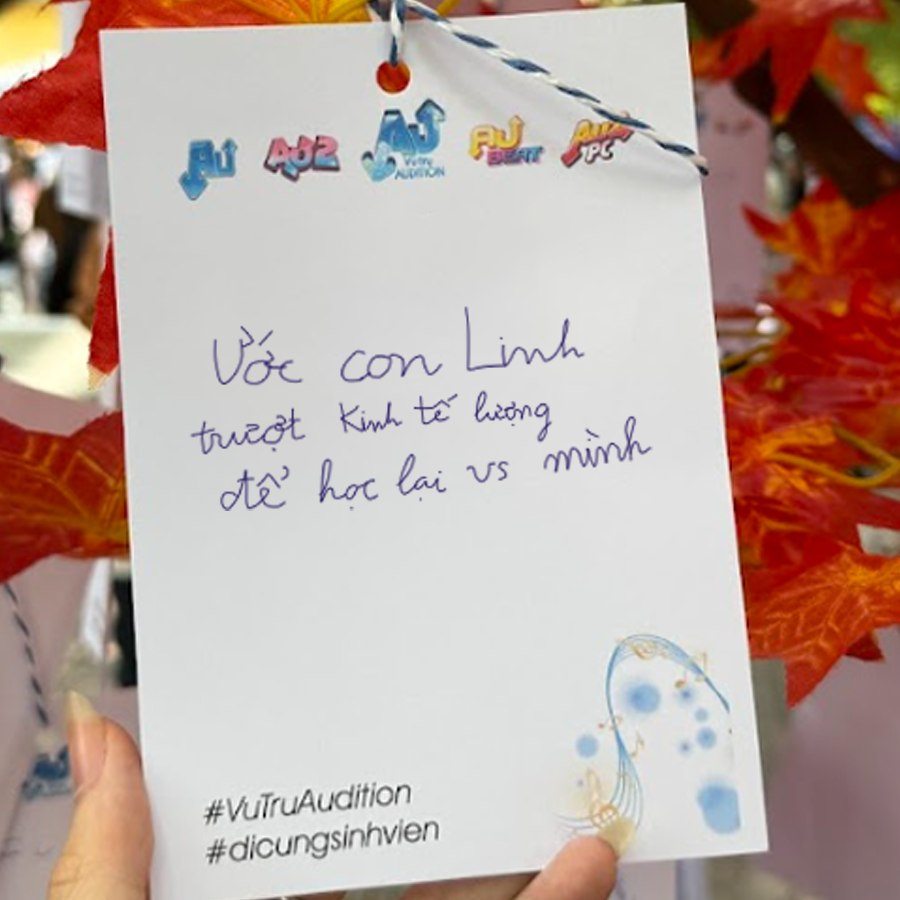 AU AU2 AU Vũ Trụ AUDITION AU BEAT AU2 !PC
Ước con Linh
trượt Kinh tế lượng
để học lại vs mình
#VuTruAudition
#dicungsinhvien